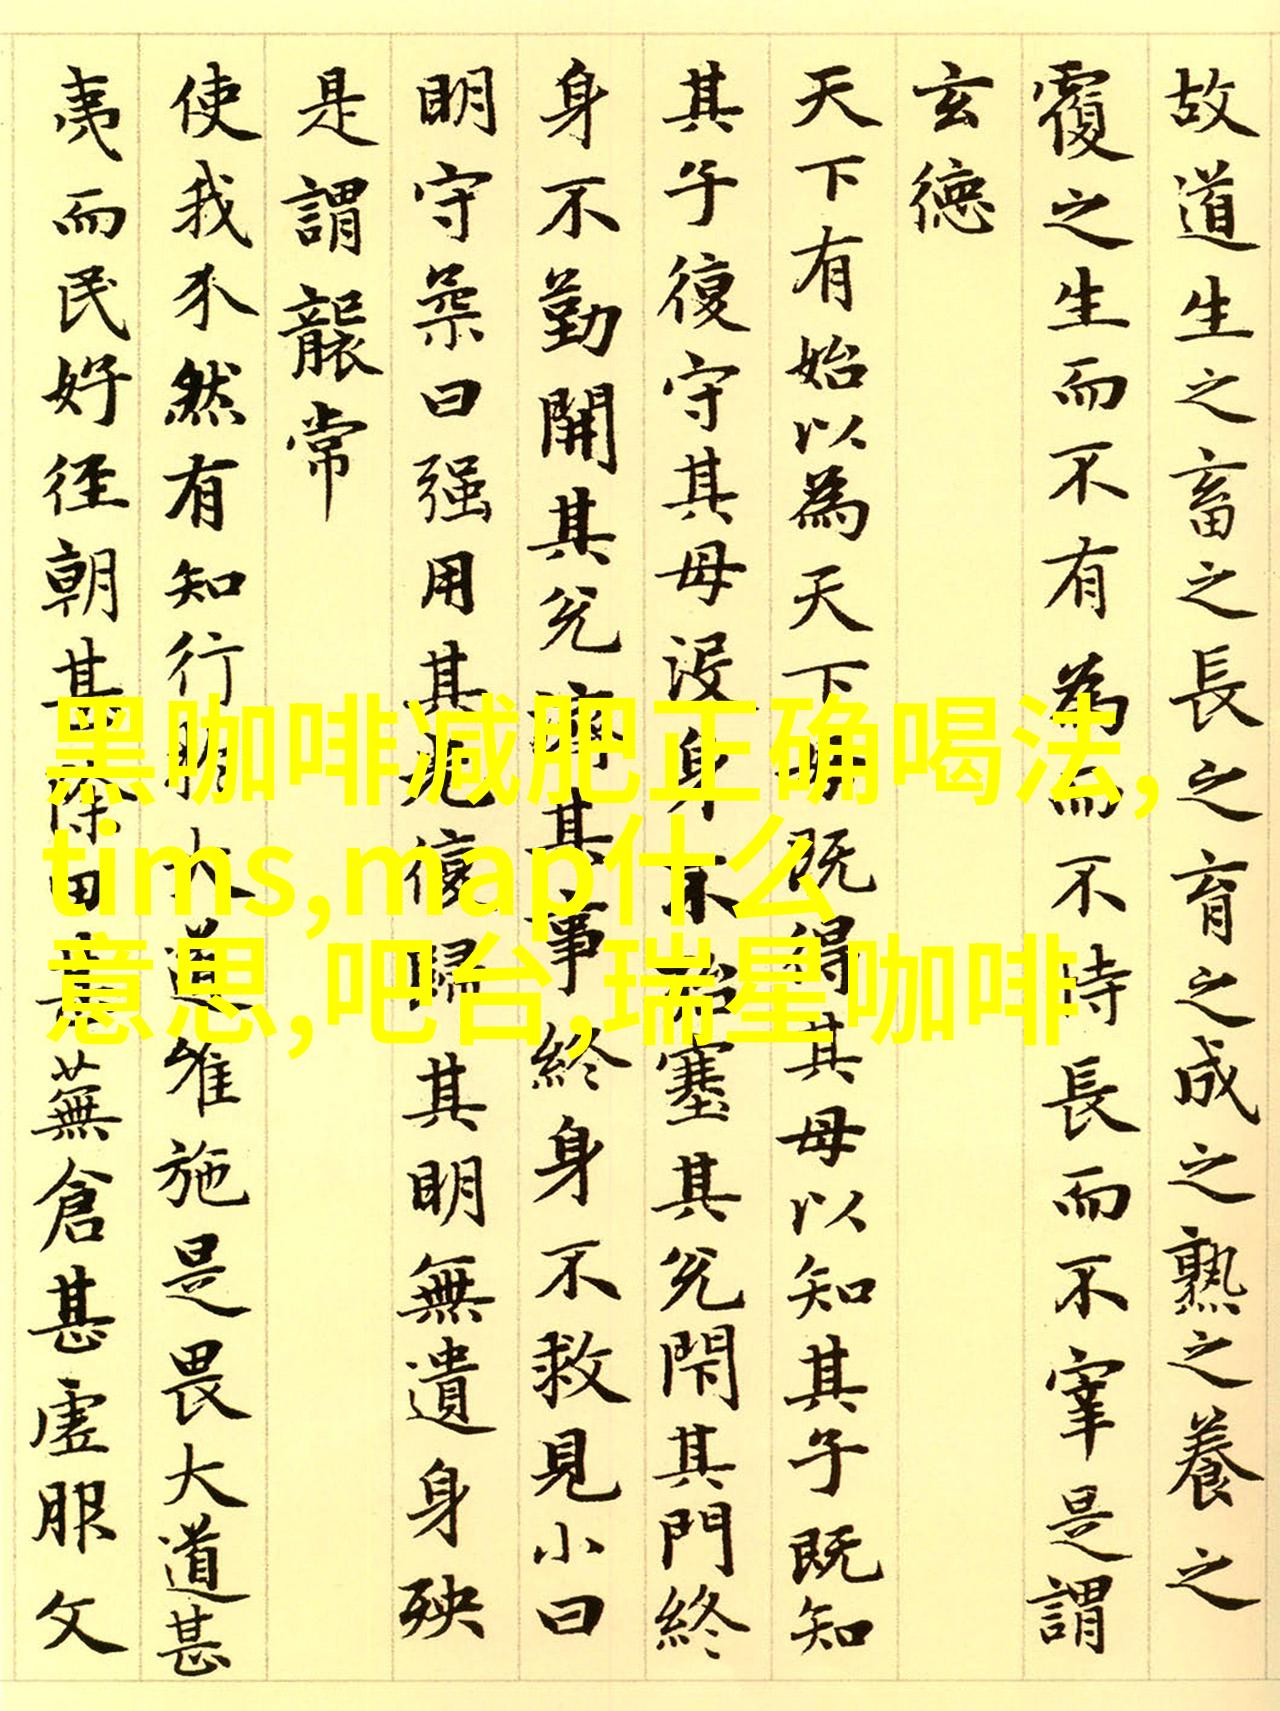 故道生之畜之長之育之成之熟之養之
覆之生而不有為而不恃長而不宰是謂
玄德
天下有始以為天下母既得其母以知其子既知
其子復守其母沒身不殆塞其兊閇其門終
身不勤開其兊濟其事終身不救見小曰
明守柔曰强用其光復歸其明無遺身殃
是謂襲常
使我介然有知行於大道唯施是畏大道甚
夷而民好径朝甚除田甚蕪倉甚虛服文
黑咖啡减肥正确喝法,
tims,map什么
意思,吧台,瑞星咖啡